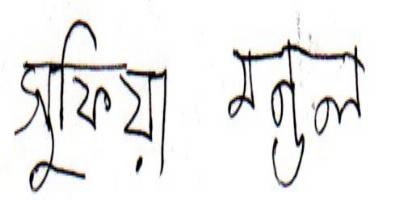 সুফিয়া মন্ডল